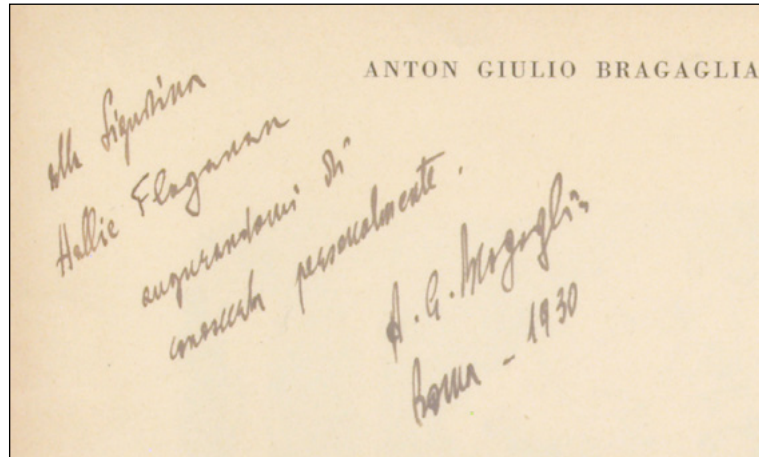 ANTON GIULIO BRAGAGLIA
alla Signorina
Hallie Flaganan
augurandomi di
conoscerla personalmente.
A. G. Bragaglia
Roma - 1930